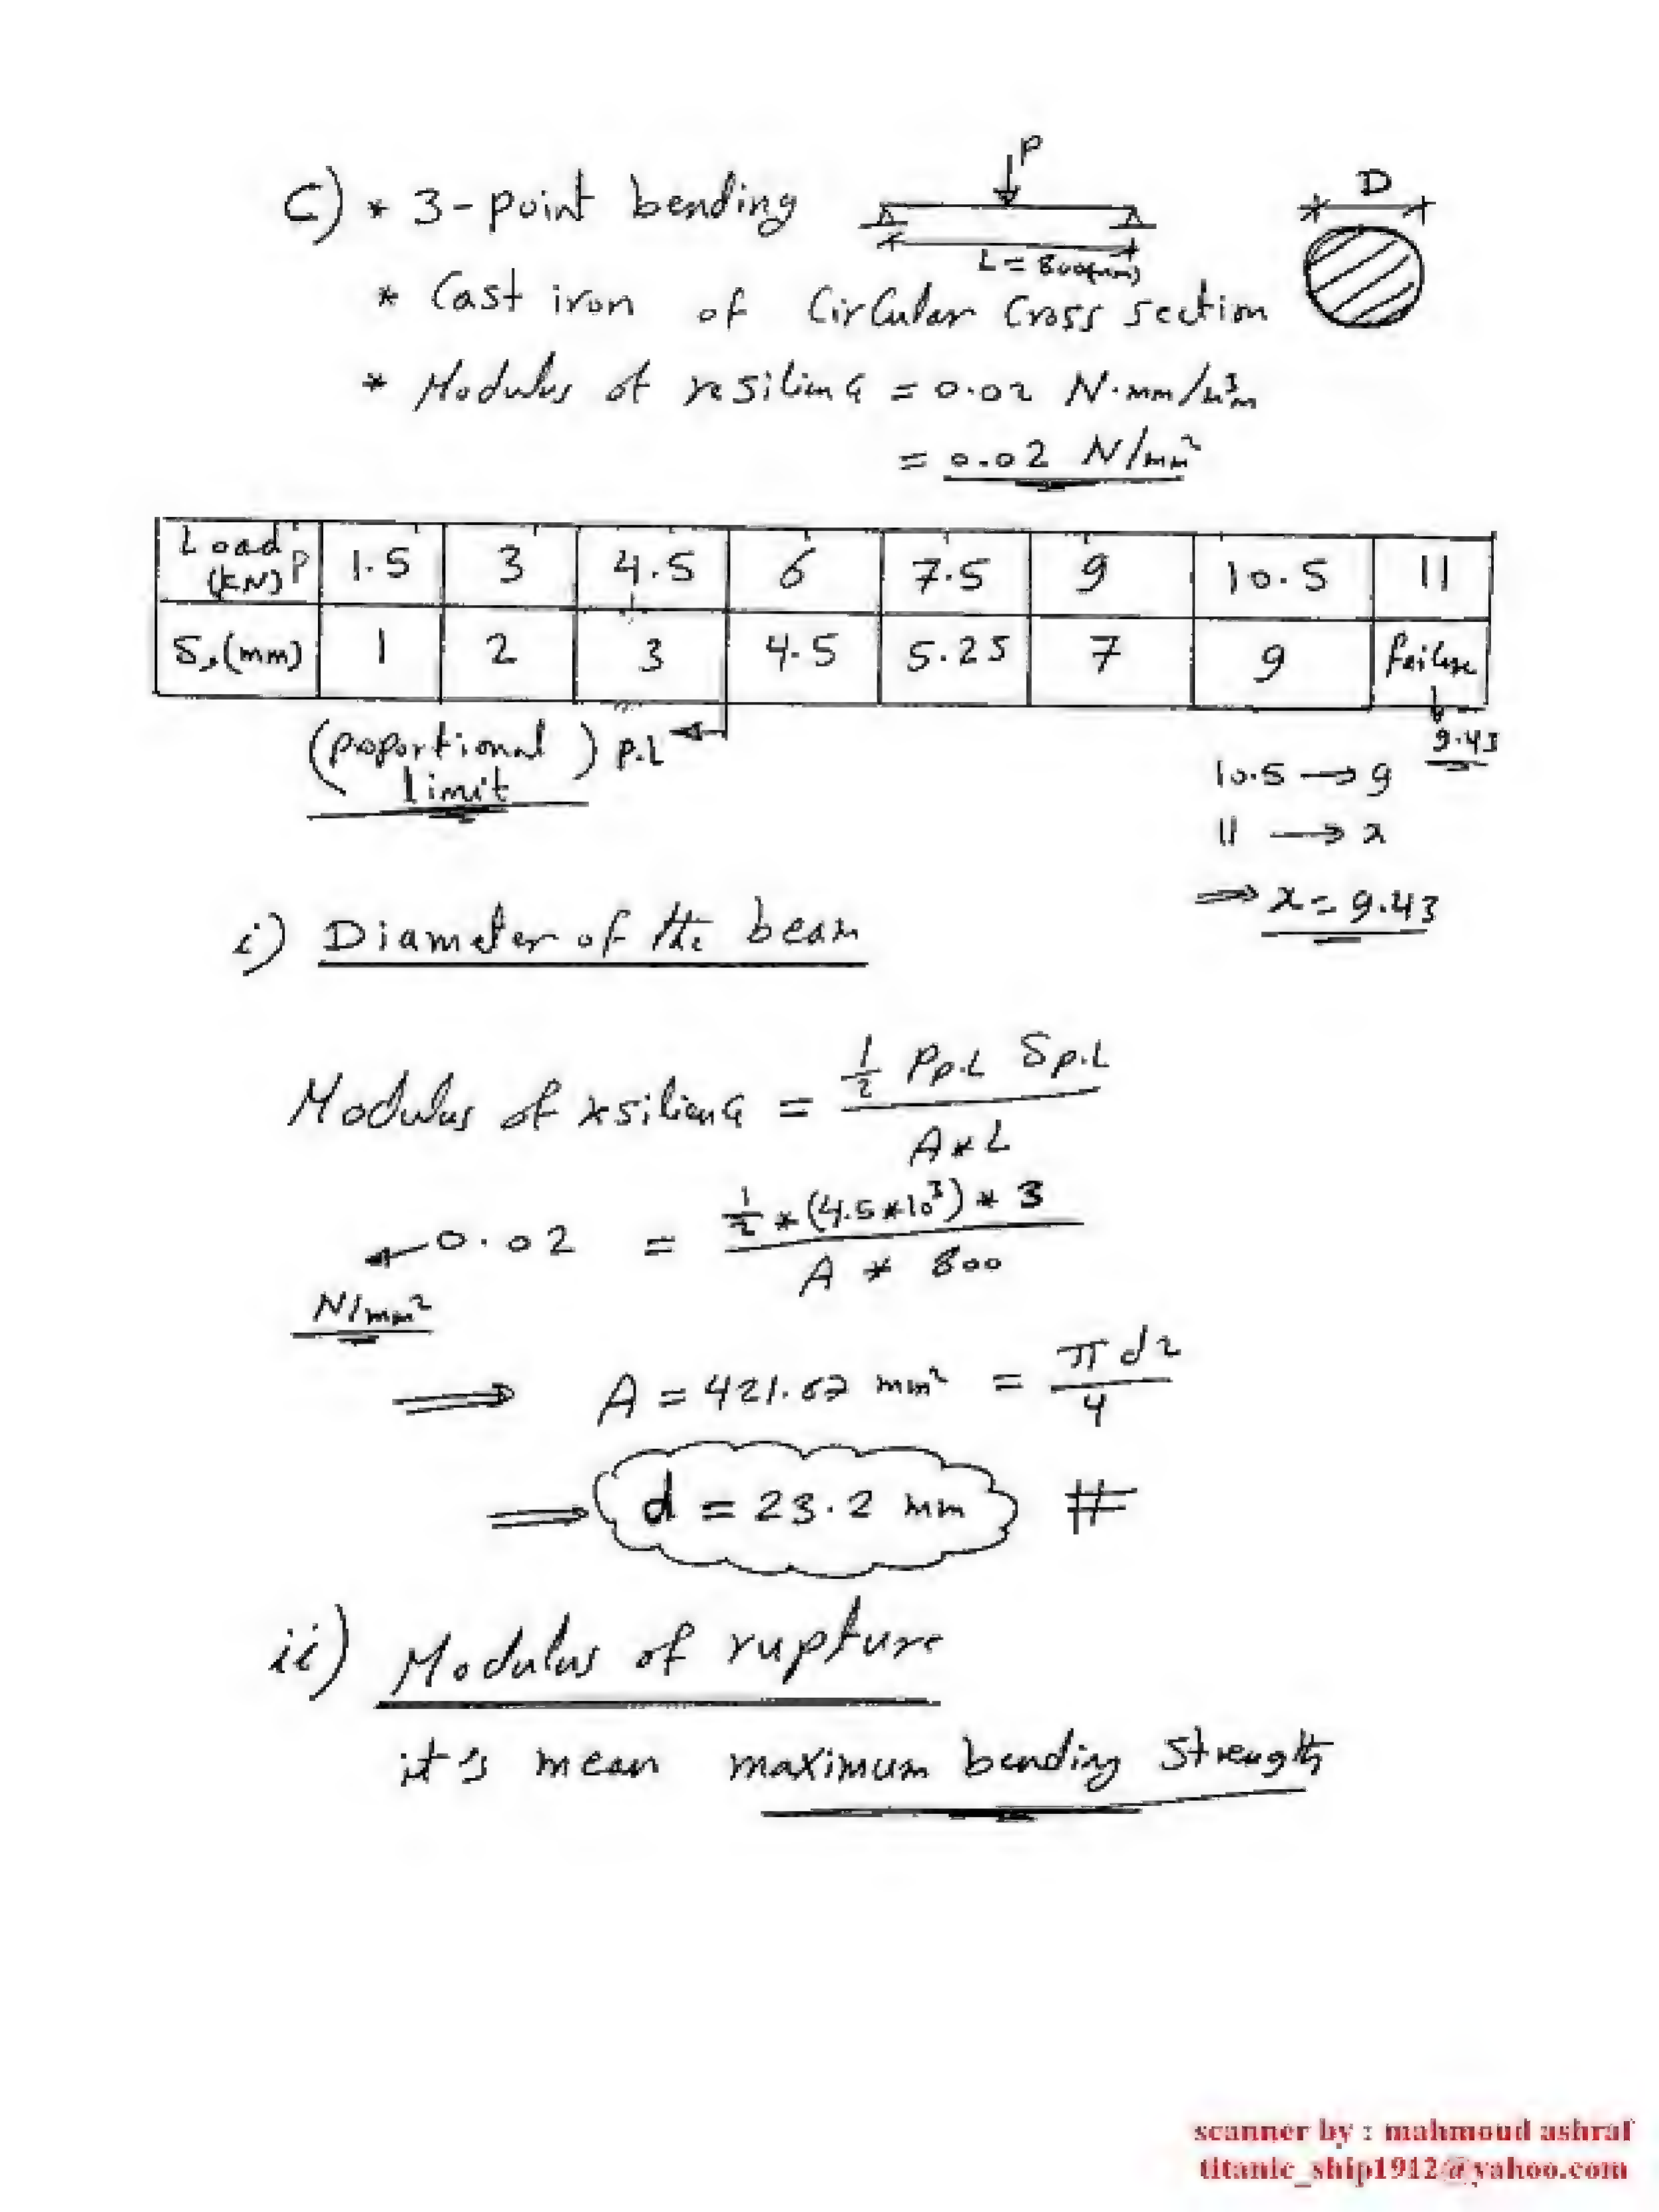 C) * 3-point bending
P
L = 800(mm)
D
* Cast iron of Circular Cross section
* Modulus of resilience = 0.02 N·mm/mm³
= 0.02 N/mm²
Load P (kN) 1.5 3 4.5 6 7.5 9 10.5 11
δ, (mm) 1 2 3 4.5 5.25 7 9 failure
(poportional limit) P.L
9.43
10.5 → 9
11 → x
⇒ x = 9.43
i) Diameter of the beam
Modulus of resilience = ½ Pp.L δp.L / A * L
0.02 = ½ * (4.5 * 10³) * 3 / A * 800
N/mm²
⇒ A = 421.87 mm² = π d² / 4
⇒ d = 23.2 mm #
ii) Modulus of rupture
it's mean maximum bending strength
scanner by : mahmoud ashraf
titanic_ship1912@yahoo.com